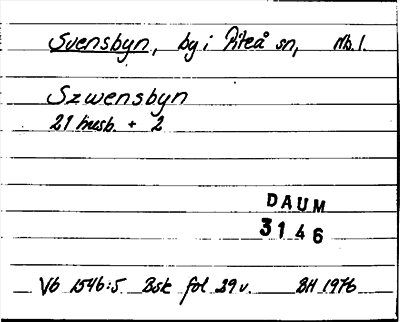 Svensbyn, by i Piteå sn, Nb. l.
Szwensbyn
21 husb. + 2
DAUM
3146
Vb 1546:5 Bsk fol 29v. BH 1976